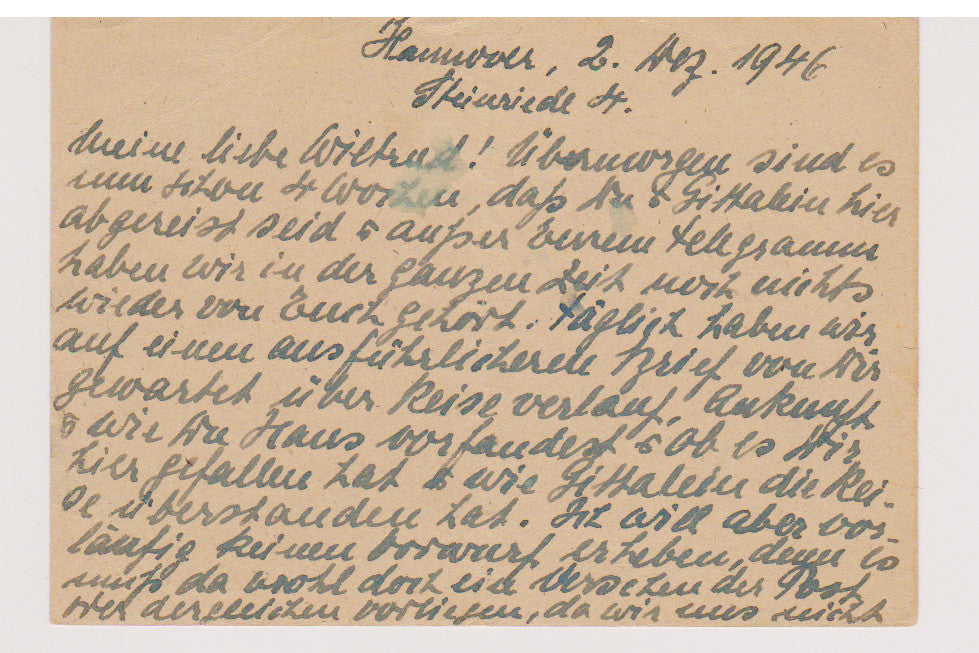 Hannover, 2. Dez. 1946
Steinriede 4.
Meine liebe Wiltrud! Übermorgen sind es
nun schon 4 Wochen, daß Du & Gittalein hier
abgereist seid & außer Eurem Telegramm
haben wir in der ganzen Zeit noch nichts
wieder von Euch gehört. Täglich haben wir
auf einen ausführlicheren Brief von Dir
gewartet über Reiseverlauf, Ankunft
& wie Du Haus vorfandest & ob es Dir
hier gefallen hat & wie Gittalein die Rei-
se überstanden hat. Ich will aber vor-
läufig keinen Vorwurf erheben, denn es
muß da wohl doch ein Versehen der Post
oder dergleichen vorliegen, da wir uns nicht